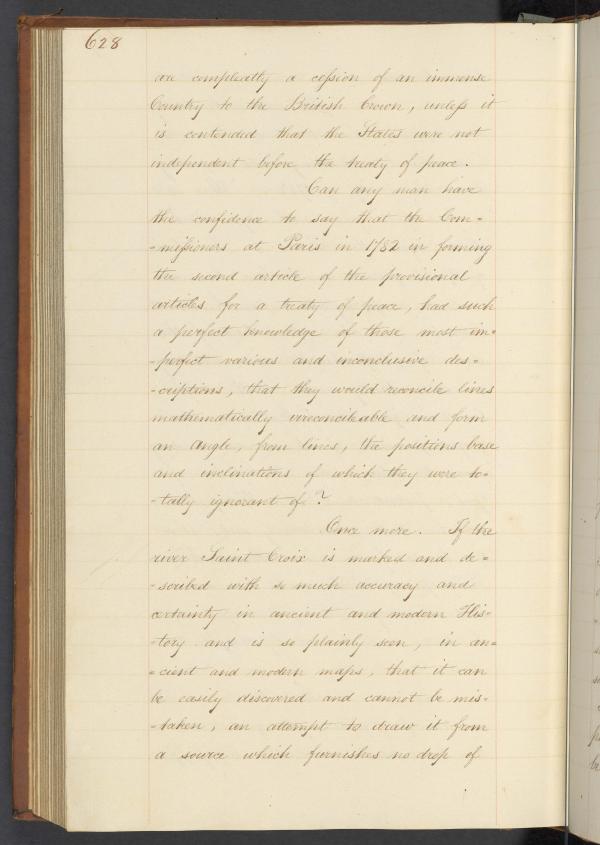 628
are compleatly a cession of an immense
Country to the British Crown, unless it
is contended that the States were not
independent before the treaty of peace.
Can any man have
the confidence to say that the Com=
=missioners at Paris in 1782 in forming
the second article of the provisional
articles for a treaty of peace, had such
a perfect knowledge of those most im=
=perfect various and inconclusive des=
=criptions, that they would reconcile lines
mathematically irreconcileable and form
an angle, from lines, the positions base
and inclinations of which they were to=
=tally ignorant of?
Once more. If the
river Saint Croix is marked and de=
=scribed with so much accuracy and
certainty in ancient and modern His=
=tory and is so plainly seen, in an=
=cient and modern maps, that it can
be easily discovered and cannot be mis=
=taken, an attempt to draw it from
a source which furnishes no drop of